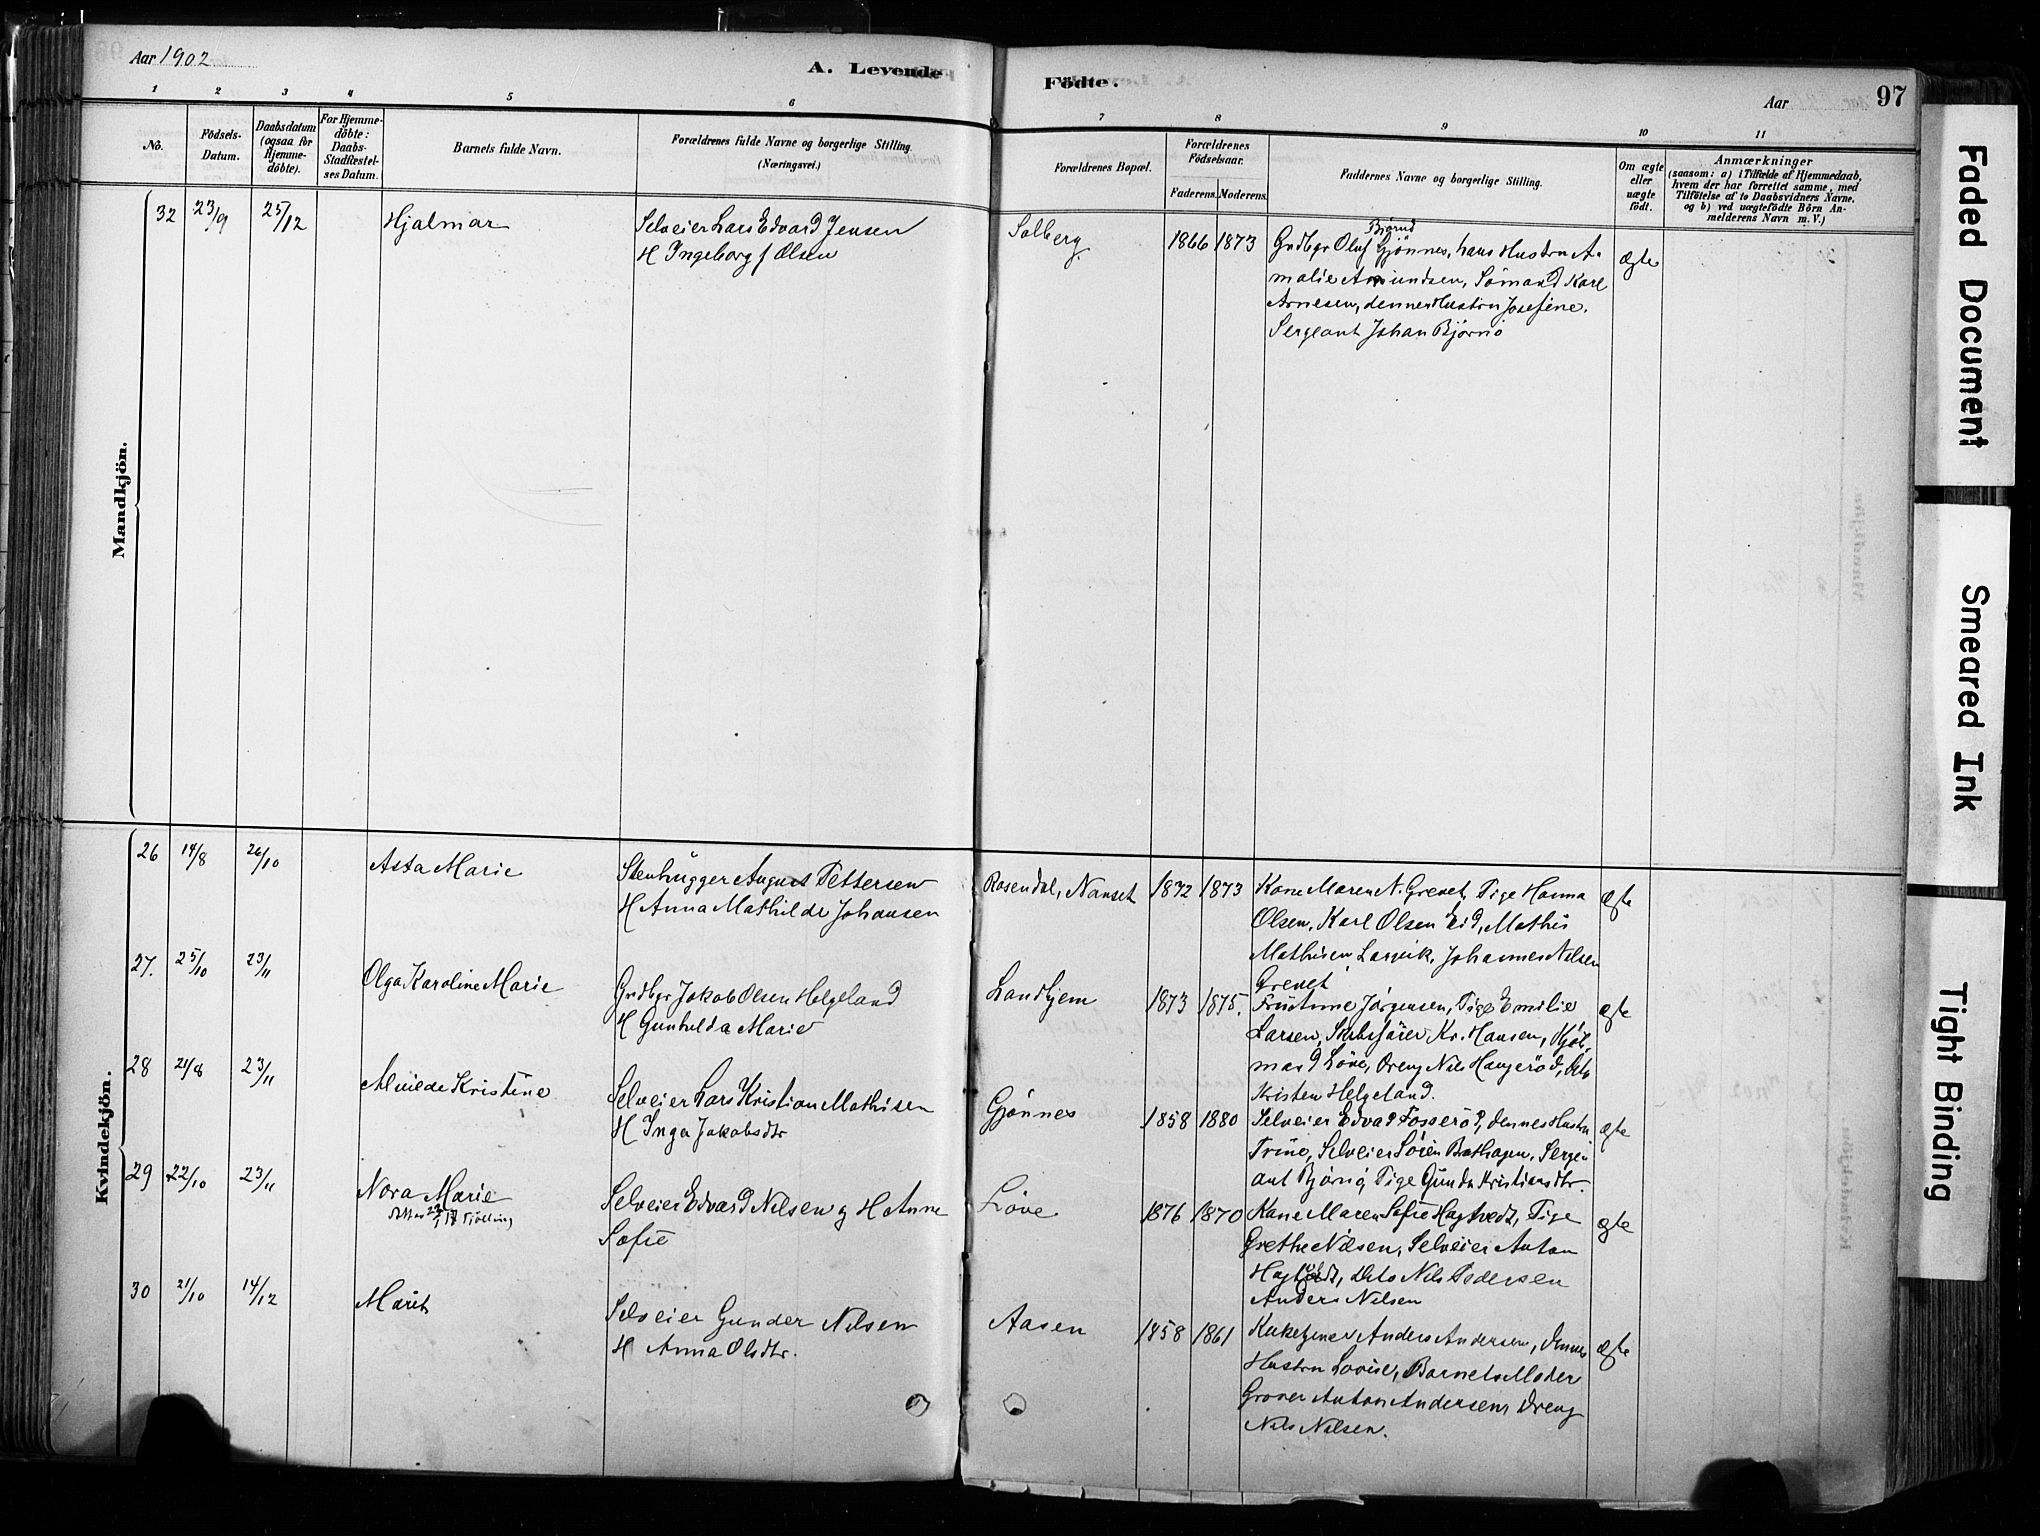 Aar 1902
A. Levende
Födte.
Aar
97
1 2 3 4 5 6 7 8 9 10 11
No.
Födsels-
Datum.
Daabsdatum
(ogsaa for
Hjemme-
döbte).
For Hjemme-
döbte:
Daabs-
Stadfæstel-
ses Datum.
Barnets fulde Navn.
Forældrenes fulde Navne og borgerlige Stilling.
(Næringsvei.)
Forældrenes Bopæl.
Forældrenes
Födselsaar.
Faderens. Moderens.
Faddernes Navne og borgerlige Stilling.
Om ægte
eller
uægte
födt.
Anmærkninger
(saasom: a) i Tilfælde af Hjemmedaab,
hvem der har forrettet samme, med
Tilföielse af to Daabsvidners Navne.
og b) ved uægtefödte Börn An-
melderens Navn m. V.)
Mandkjön.
32 23/9 25/12
Hjalmar
Selveier Lars Edvard Jensen
H Ingeborg f Olsen
Solberg
1866 1873
Bjørnd
Grdbgr Oluf Gjønnes, hans Hustru A-
malie Amundsen, Sømand Karl
Arnesen, dennes Hustru Josefine.
Sergeant Johan Bjørnø
ægte
Kvindekjön.
26 14/8 26/10
Asta Marie
Stenhugger August Pettersen
H Anna Mathilde Johansen
Rosendal, Nanset
1872 1873
Kone Maren N. Grevet, Pige Hanna
Olsen, Karl Olsen Eid, Mathis
Mathisen Larvik, Johannes Nilsen
Grevet
ægte
27. 25/10 23/11
Olga Karoline Marie
Grdbgr Jakob Olsen Helgeland
H Gunhilda Marie
Landhjem
1873 1875.
Jørgensen, Pige Emilie
Larsen, Skibsfører Kr. Hansen,
mand Løve, Dreng Nils Haugerød, Dito
Kristen Helgeland.
ægte
28 21/8 23/11
Alvilde Kristine
Selveier Lars Kristian Mathisen
H Inga Jakobsdtr
Gjønnes
1858 1880
Selveier Edvard Fosserød, dennes Hustru
Trine, Selveier Søren Brathagen, Serge-
ant Bjørnø, Pige Gunda Kristiansdtr.
ægte
29 22/10 23/11
Nora Marie
Tjølling
Selveier Edvard Nilsen og H Anne
Sofie
Løve
1876 1870
Kone Maren Sofie Hagtvedt, Pige
Grethe Nilsen, Selveier Anton
Hagtvedt, Dito Nils Pedersen
Anders Nilsen
ægte
30 21/10 14/12
Marit
Selveier Gunder Nilsen
H Anna Olsdtr.
Aasen
1858 1861
Kirketjener Anders Andersen, dennes
Hustru Lovise, Barnets Moder
Graver Anton Andersen, Dreng
Nils Nilsen.
ægte
Faded Document
Smeared Ink
Tight Binding